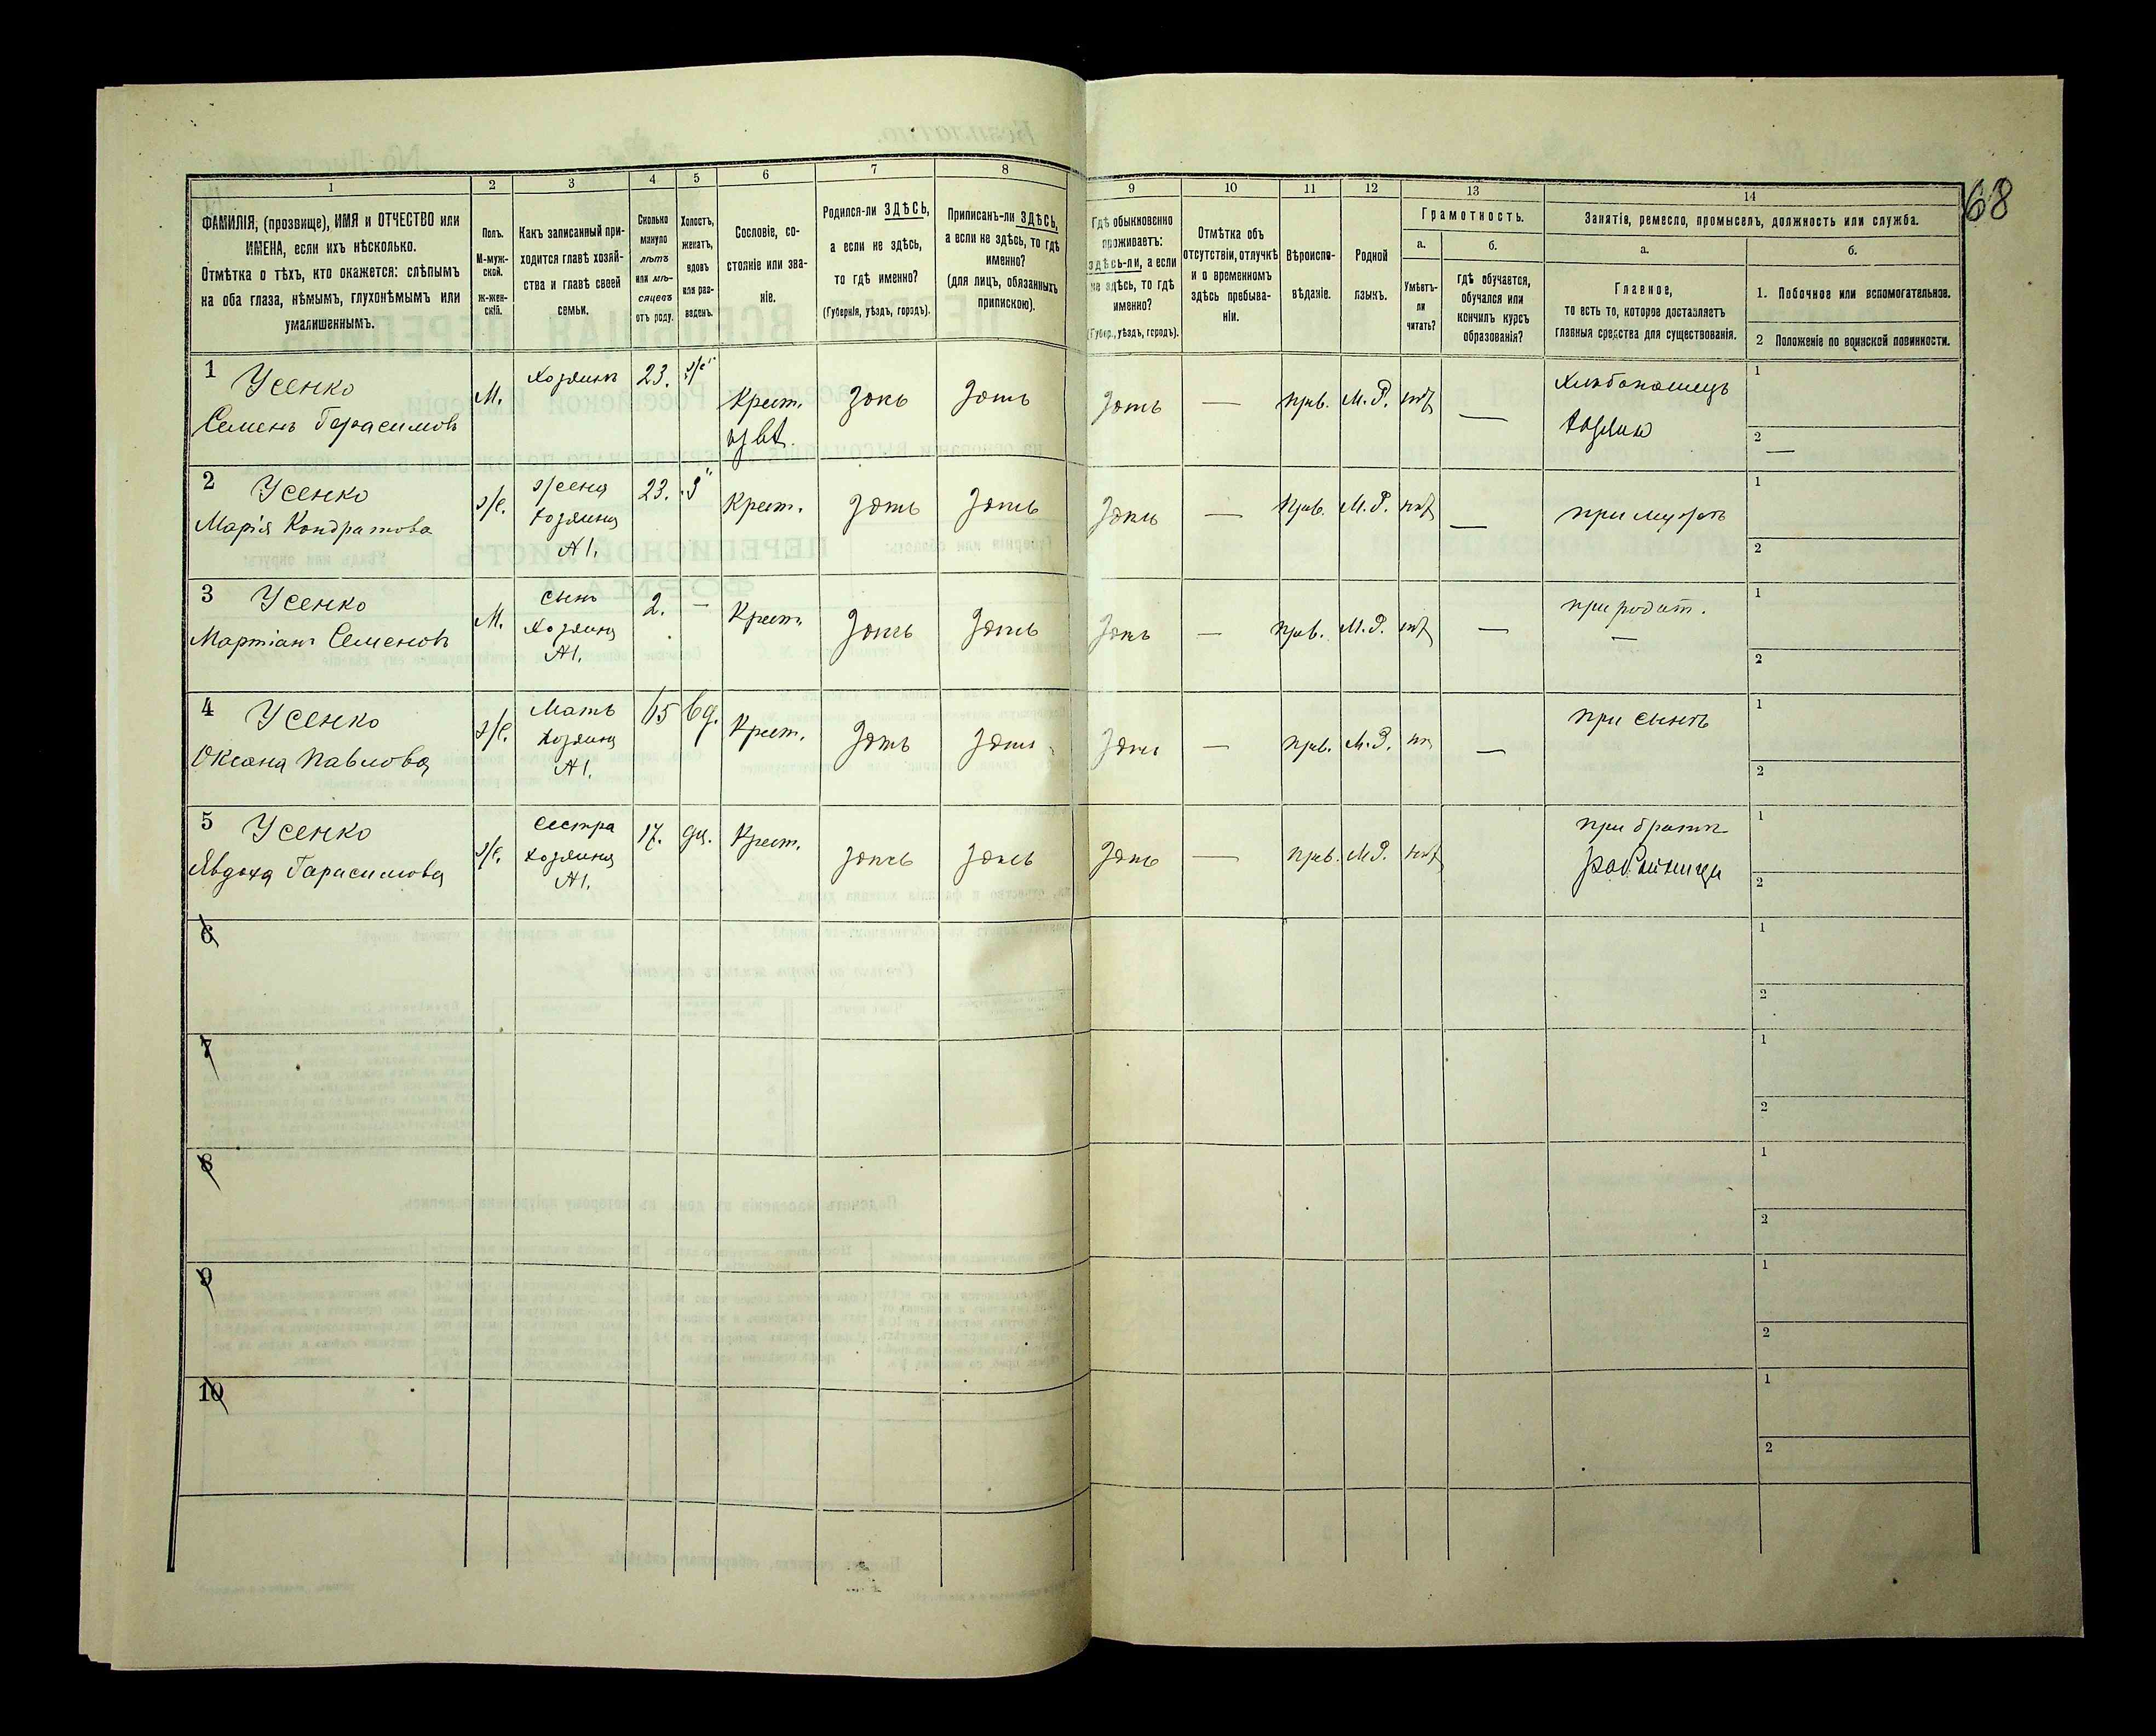 68
1 2 3 4 5 6 7 8 9 10 11 12 13 14
ФАМИЛІЯ, (прозвище), ИМЯ и ОТЧЕСТВО или
ИМЕНА, если ихъ нѣсколько.
Отмѣтка о тѣхъ, кто окажется: слѣпымъ
на оба глаза, нѣмымъ, глухонѣмымъ или
умалишеннымъ.
Полъ.
М-муж-
ской.
ж-жен-
скій.
Какъ записанный при-
ходится главѣ хозяй-
ства и главѣ своей
семьи.
Сколько
минуло
лѣтъ
или мѣ-
сяцевъ
отъ роду.
Холостъ,
женатъ,
вдовъ
или раз-
веденъ.
Сословіе, со-
стояніе или зва-
ніе.
Родился-ли ЗДѢСЬ,
а если не здѣсь,
то гдѣ именно?
(Губернія, уѣздъ, городъ).
Приписанъ-ли ЗДѢСЬ,
а если не здѣсь, то гдѣ
именно?
(для лицъ, обязанныхъ
припискою).
Гдѣ обыкновенно
проживаетъ:
здѣсь-ли, а если
не здѣсь, то гдѣ
именно?
(Губер., уѣздъ, городъ).
Отмѣтка объ
отсутствіи, отлучкѣ
и о временномъ
здѣсь пребыва-
ніи.
Вѣроиспо-
вѣданіе.
Родной
языкъ.
Грамотность.
а.
Умѣетъ-
ли
читать?
б.
гдѣ обучается,
обучался или
кончилъ курсъ
образованія?
Занятіе, ремесло, промыселъ, должность или служба.
а.
Главное,
то есть то, которое доставляетъ
главныя средства для существованія.
б.
1. Побочное или вспомогательное.
2 Положеніе по воинской повинности.
1 Усенко
Семенъ Герасимовъ
М. Хозяинъ 23. Крест.
Здѣсь Здѣсь Здѣсь — прв. М.Р. —
Хлѣбопашецъ
Хозяинъ
1
2 —
2 Усенко
Марія Кондратова
Жена
Хозяина
№1.
23. Крест. Здѣсь Здѣсь Здѣсь — прв. М.Р. — при мужѣ
1
2
3 Усенко
Мартіанъ Семеновъ
М.
Сынъ
Хозяина
№1.
2. — Крест. Здѣсь Здѣсь Здѣсь — прв. М.Р. — при родит.
—
1
2
4 Усенко
Оксана Павлова
Мать
Хозяина
№1.
65 вд. Крест. Здѣсь Здѣсь Здѣсь — прв. М.Р. — при сынѣ
1
2
5 Усенко
Явдоха Гарасимова
Сестра
Хозяина
№1.
17. дѣ. Крест. Здѣсь Здѣсь Здѣсь — прв. М.Р. при братѣ
работница
1
2
6
1
2
7
1
2
8
1
2
9
1
2
10
1
2